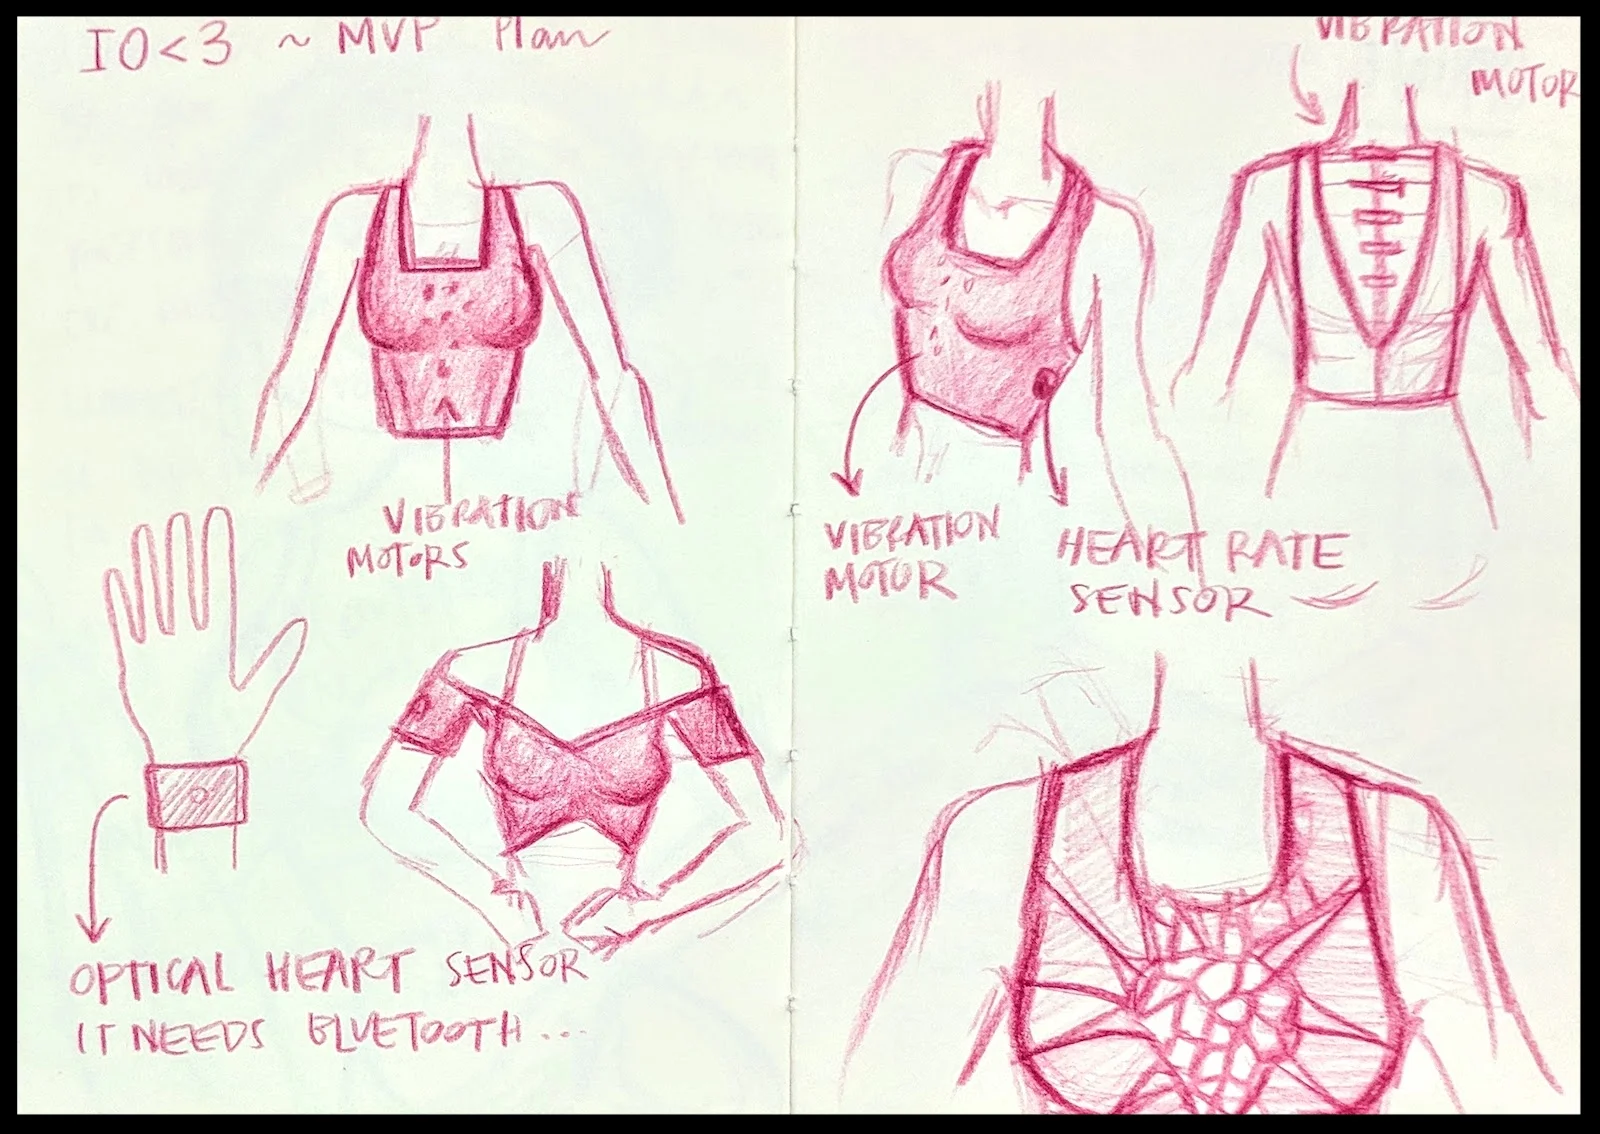 IO<3 ~ MVP Plan
VIBRATION
MOTORS
OPTICAL HEART SENSOR
IT NEEDS BLUETOOTH...
VIBRATION
MOTOR
VIBRATION
MOTOR
HEART RATE
SENSOR